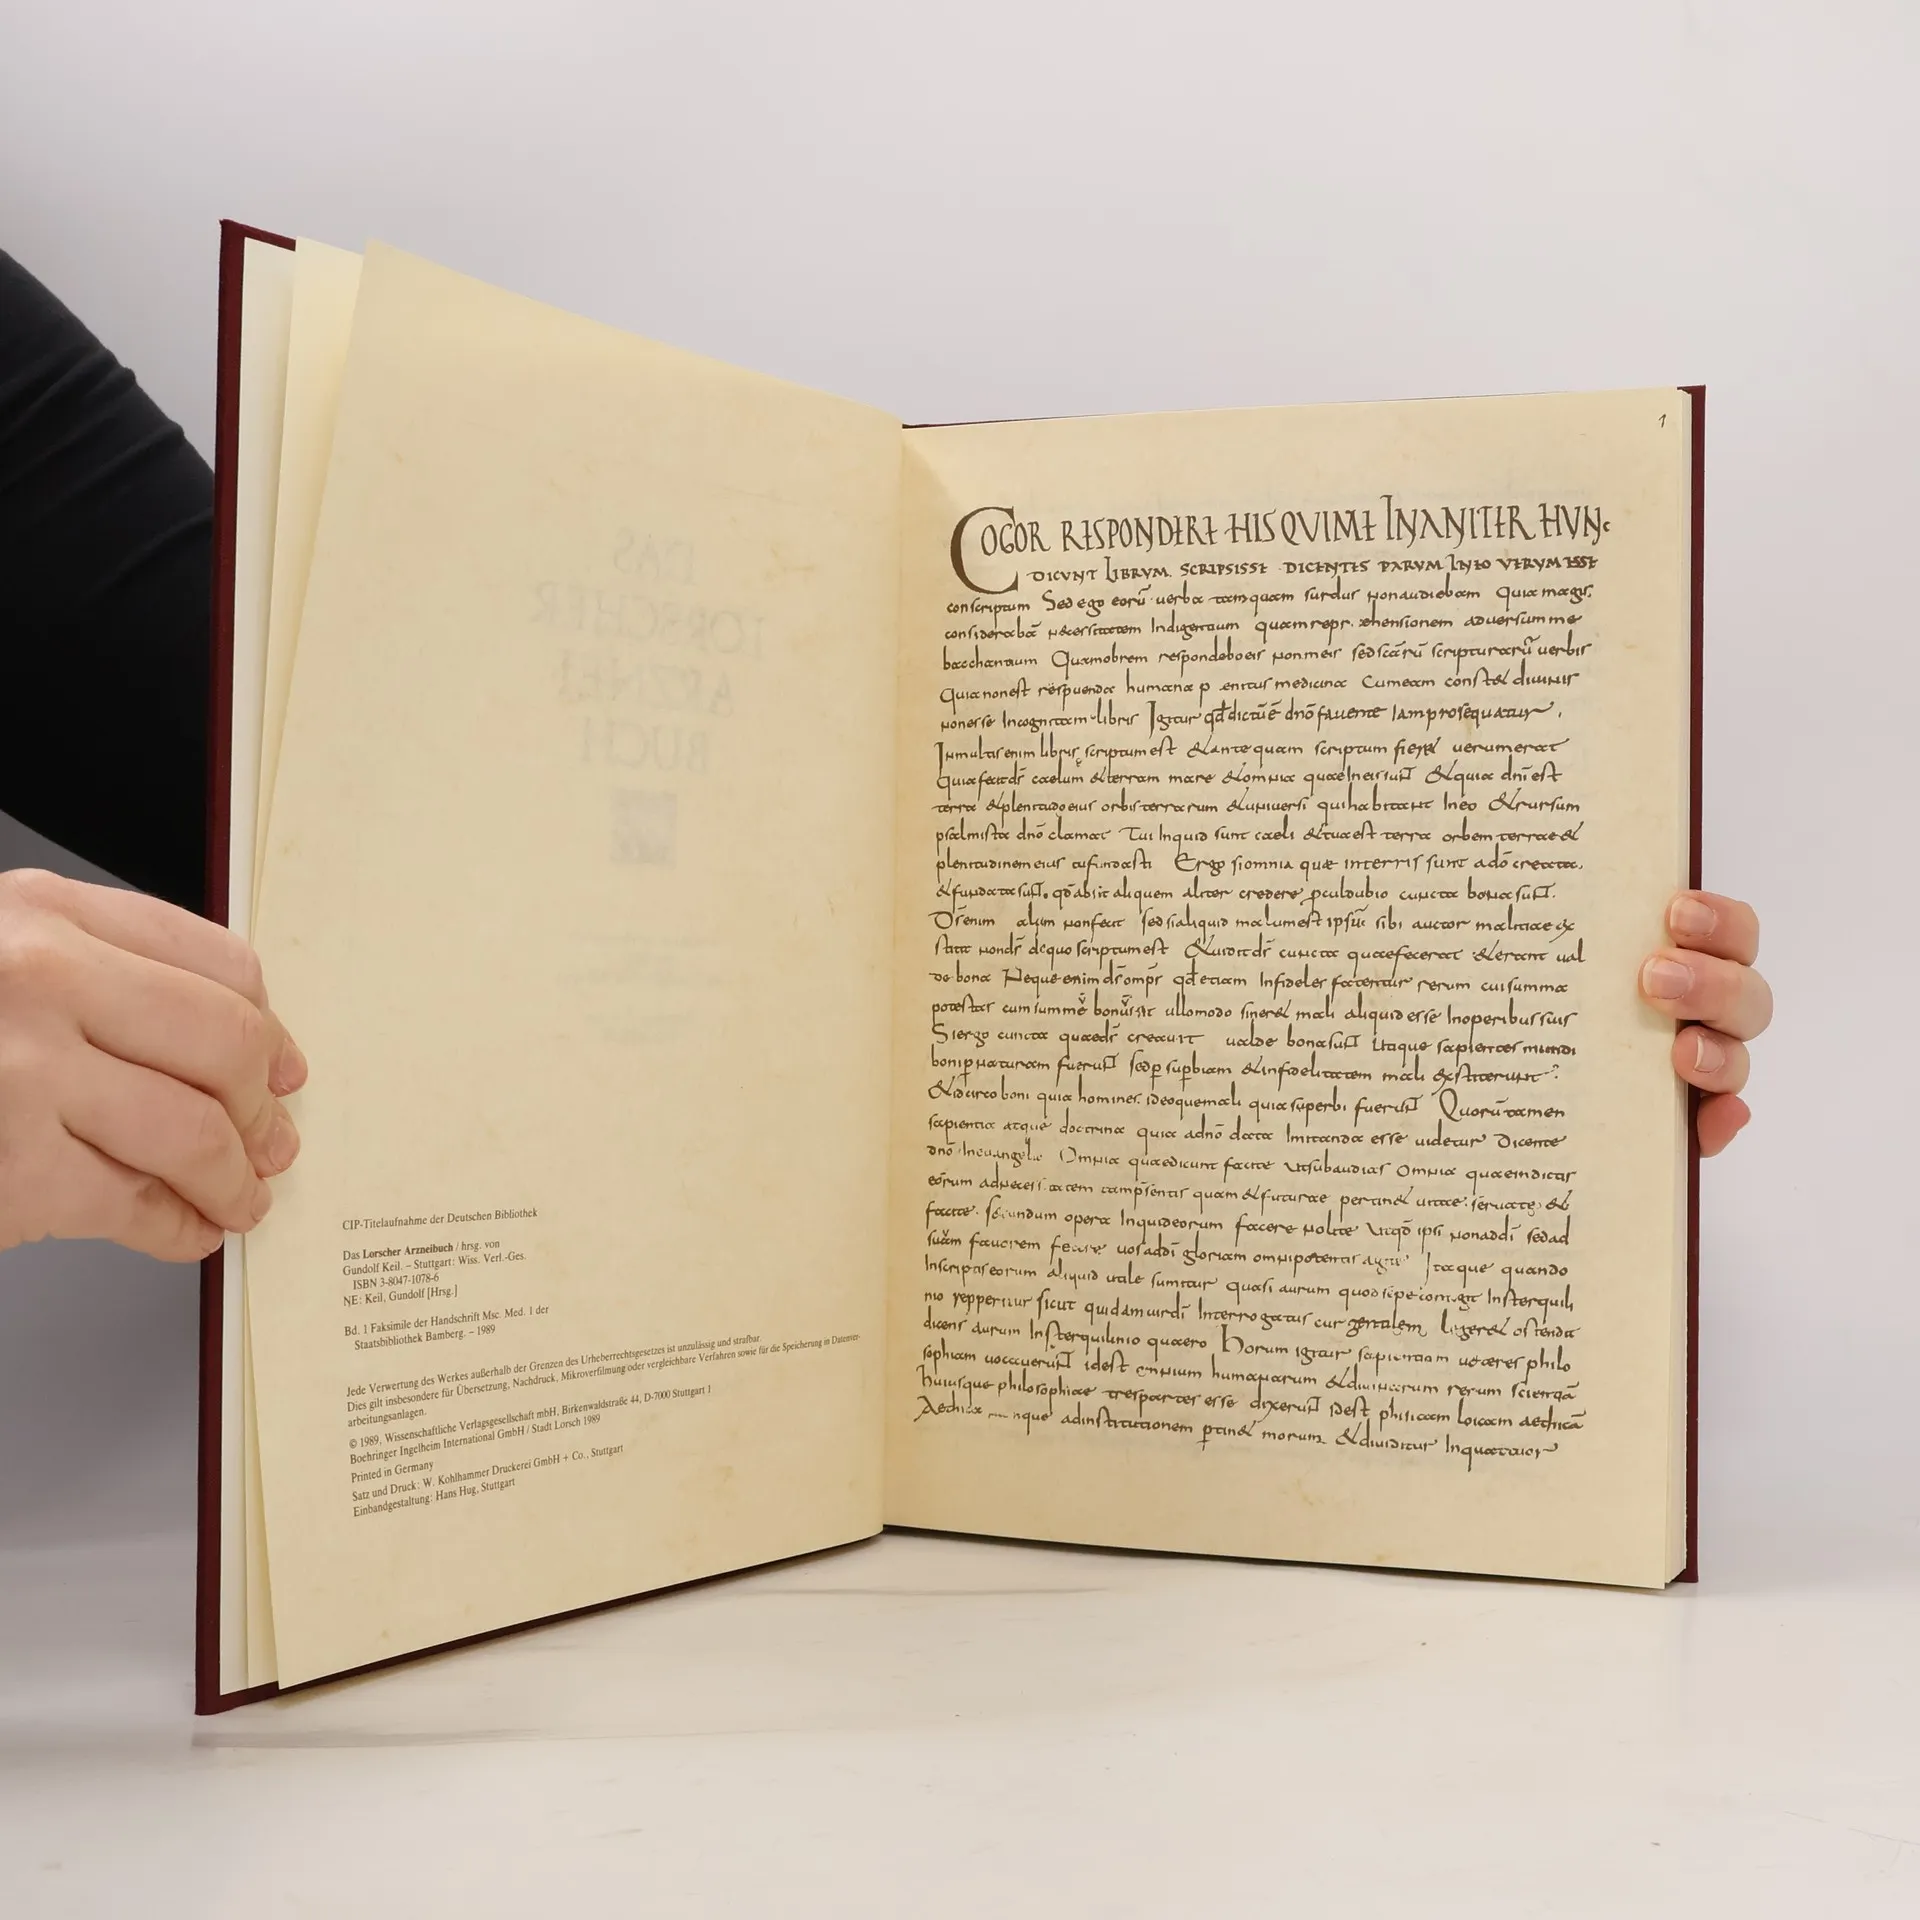 CIP-Titelaufnahme der Deutschen Bibliothek
Das Lorscher Arzneibuch / hrsg. von
Gundolf Keil. – Stuttgart: Wiss. Verl.-Ges.
ISBN 3-8047-1078-6
NE: Keil, Gundolf [Hrsg.]
Bd. 1 Faksimile der Handschrift Msc. Med. 1 der
Staatsbibliothek Bamberg. – 1989
Jede Verwertung des Werkes außerhalb der Grenzen des Urheberrechtsgesetzes ist unzulässig und strafbar.
Dies gilt insbesondere für Übersetzung, Nachdruck, Mikroverfilmung oder vergleichbare Verfahren sowie für die Speicherung in Datenver-
arbeitungsanlagen.
© 1989, Wissenschaftliche Verlagsgesellschaft mbH, Birkenwaldstraße 44, D-7000 Stuttgart 1
Boehringer Ingelheim International GmbH / Stadt Lorsch 1989
Printed in Germany
Satz und Druck: W. Kohlhammer Druckerei GmbH + Co., Stuttgart
Einbandgestaltung: Hans Hug, Stuttgart
1
COGOR RESPONDERE HIS QUI ME INANITER HUNC
DICUNT LIBRUM SCRIPSISSE DICENTES PARUM IN EO VERUM ESSE
conscriptum Sed ego eorū verba tamquam surdus non audiebam Quia magis
considerabā necessitatem Indigentium quam repr ehensionem adversum me
bacchantium Quamobrem respondebo eis non meis sed scārū scripturarū verbis
Quia non est respuenda humana p enitus medicina Cum eam constet divinis
non esse Incognitam libris Igitur qđ dictū ē dnō favente Iam prosequatur
In multis enim libris scriptum est & antequam scriptum fieret verum erat
Quia fecit dš caelum & terram mare & omnia quae In eis sunt & quia dnī est
terra & plenitudo eius orbis terrarum & universi qui habitant In eo & rursum
psalmista dnō clamat Tui Inquid sunt caeli & tua est terra orbem terrae &
plenitudinem eius tu fundasti Ergo si omnia quae in terris sunt a dō creata
& fundata sunt, qđ absit aliquem aliter credere pculdubio cuncta bona sunt.
Dš enim malum non fecit sed si aliquid malum est ipsū sibi auctor malitiae ex
stitit non dš de quo scriptum est & vidit dš cuncta quae fecerat & erant val
de bona Neque enim dš omps qđ etiam Infideles fatentur rerum cui summa
potestas cum summe bonus sit ullo modo sineret mali aliquid esse In operibus suis
Si ergo cuncta quae dš creavit valde bona sunt Itaque sapientes mundi
boni p naturam fuerunt sed p supbiam & infidelitatem mali exstiterunt
& idcirco boni quia homines ideoque mali quia superbi fuerunt Quorū tamen
sapientia atque doctrina quia a dnō data Imitanda esse videtur Dicente
dnō In evangelio Omnia quae dicunt facite Ut subaudias Omnia quae in dictis
eorum ad necessitatem tam psentis quam & futurae pertinet vitae servate &
facite secundum opera Inquid eorum facere nolite Utiqō ipsi non ad dī sed ad
suam favorem vos ad dī gloriam omnipotentis Itaque quando
In scriptis eorum aliquid utile sumitur quasi aurum quod sepe contigit In sterquili
nio repperitur sicut quidam vir dī Interrogatus cur gentilem legeret ostendit
dicens aurum In sterquilinio quaero Horum igitur sapientiam veteres philo
sophiam vocaverunt id est omnium humanarum & divinarum rerum scientiā
huiusque philosophiae tres partes esse dixerunt id est phisicam loicam aethicā
Aethica ad institutionem ptinet morum & dividitur In quattuor